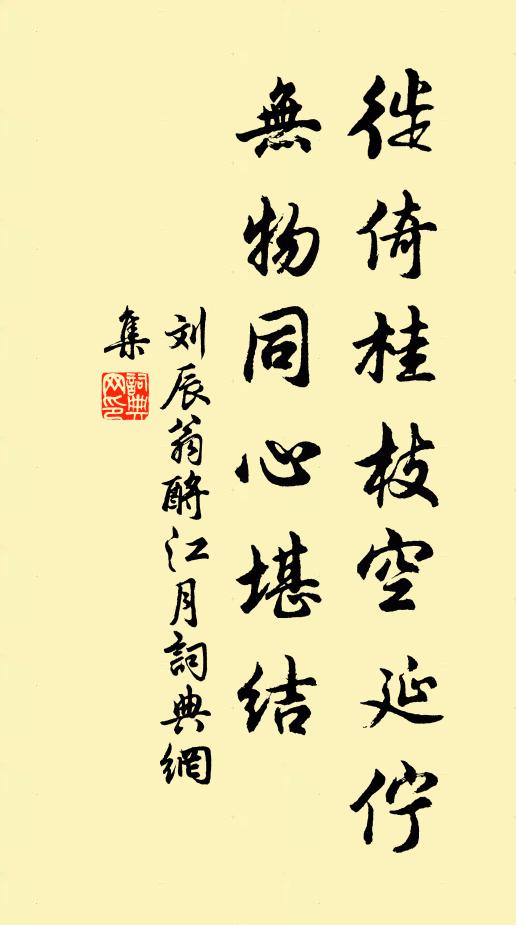 徙倚桂枝空延佇
無物同心堪结
刘辰翁酹江月詞典網
集
詞典
网印